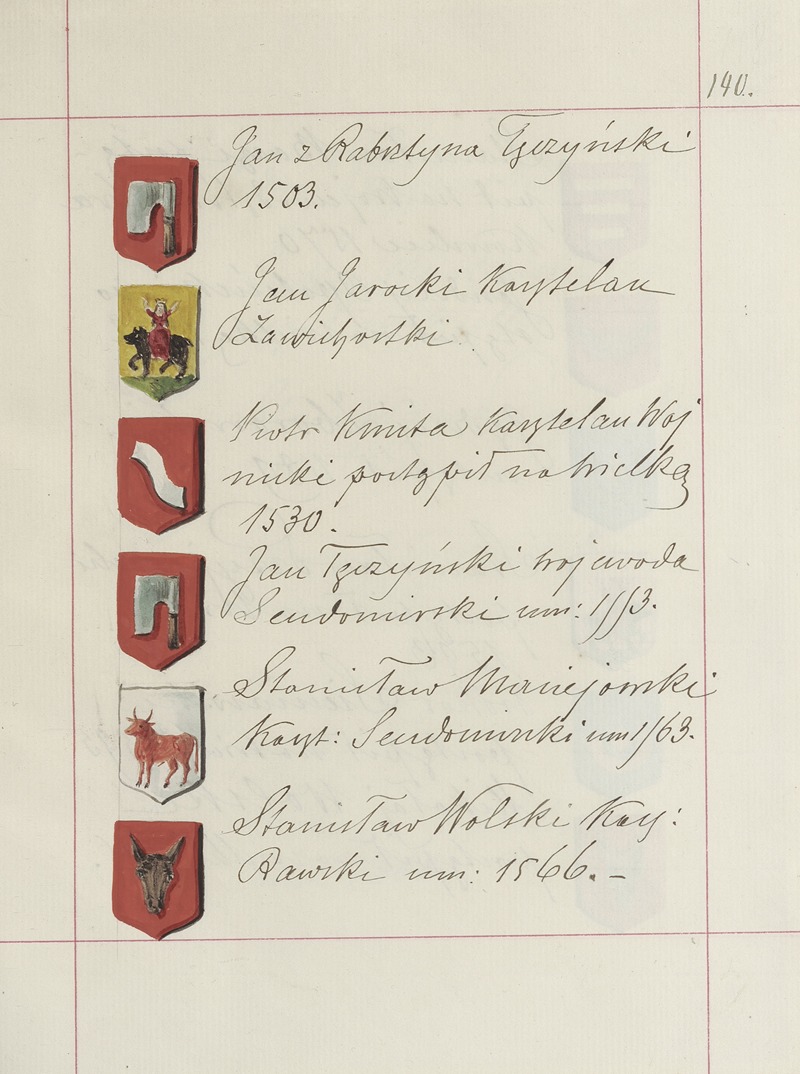 140.
Jan z Rabsztyna Tęczyński
1503.
Jan Jarocki Kasztelan
Zawichostki
Piotr Kmita Kasztelan Woj
nicki postąpił na wielką
1530.
Jan Tęczyński wojewoda
Sendomirski um: 1553.
Stanisław Maciejowski
Kaszt: Sendomirski um 1563.
Stanisław Wolski Kasz:
Rawski um: 1566. –